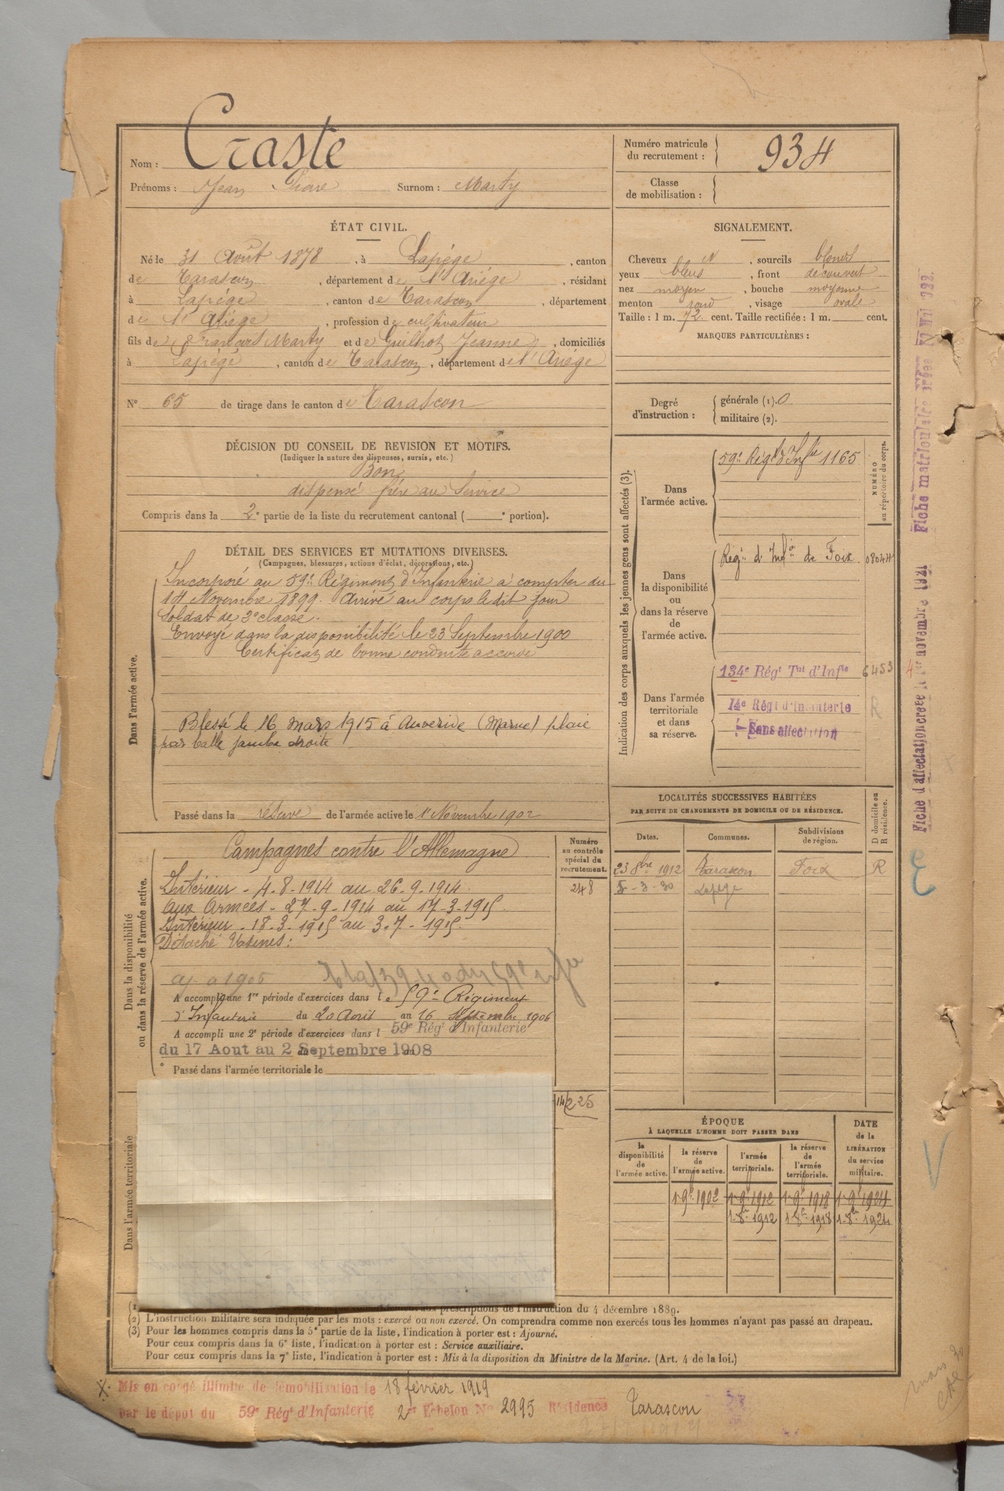 Nom : Craste
Prénoms : Jean Pierre Surnom : Marty
Numéro matricule
du recrutement : 934
Classe
de mobilisation :
ÉTAT CIVIL.
Né le 31 Août 1878, à Lapège, canton
de Tarascon, département de l'Ariège, résidant
à Lapège, canton de Tarascon, département
de l'Ariège, profession de cultivateur
fils de François Marty et de Guilhot Jeanne, domiciliés
à Lapège, canton de Tarascon, département de l'Ariège
N° 65 de tirage dans le canton de Tarascon
SIGNALEMENT.
Cheveux et, sourcils blonds
yeux bleus, front découvert
nez moyen, bouche moyenne
menton rond, visage ovale
Taille : 1 m. 72 cent. Taille rectifiée : 1 m. cent.
MARQUES PARTICULIÈRES :
Degré
d'instruction :
générale (1). 0
militaire (2).
DÉCISION DU CONSEIL DE REVISION ET MOTIFS.
(Indiquer la nature des dispenses, sursis, etc.)
Bon
dispensé frère au service
Compris dans la 2e partie de la liste du recrutement cantonal ( e portion).
DÉTAIL DES SERVICES ET MUTATIONS DIVERSES.
(Campagnes, blessures, actions d'éclat, décorations, etc.)
Dans l'armée active.
Incorporé au 59e Régiment d'Infanterie à compter du
14 Novembre 1899. Arrivé au corps le dit jour
soldat de 2e classe.
Envoyé dans la disponibilité le 23 Septembre 1900
Certificat de bonne conduite accordé
Blessé le 16 mars 1915 à Auverive (Marne) plaie
par balle jambe droite
Passé dans la réserve de l'armée active le 1er Novembre 1902
Indication des corps auxquels les jeunes gens sont affectés (3).
NUMÉRO
au répertoire du corps.
Dans
l'armée active.
59e Régt d'Infie 1165
Dans
la disponibilité
ou
dans la réserve
de
l'armée active.
Régt d'Infie de Foix 08044
Dans l'armée
territoriale
et dans
sa réserve.
134e Régt Tal d'Infie 6453
14e Régt d'Infanterie R
Sans affectation
Dans la disponibilité
ou dans la réserve de l'armée active.
Campagnes contre l'Allemagne
Numéro
au contrôle
spécial du
recrutement.
248
Intérieur - 4-8-1914 au 26-9-1914.
Aux Armées - 27-9-1914 au 17-3-1915.
Intérieur - 18-3-1915 au 3-7-1915.
Détaché Usines :
aj à 1905
A accompli une 1re période d'exercices dans le 59e Régiment
d'Infanterie du 20 Août au 16 Septembre 1906
A accompli une 2e période d'exercices dans l 59e Régt d'Infanterie
du 17 Aout au 2 Septembre 1908
Passé dans l'armée territoriale le
225
Dans l'armée territoriale
LOCALITÉS SUCCESSIVES HABITÉES
PAR SUITE DE CHANGEMENTS DE DOMICILE OU DE RÉSIDENCE.
Dates. Communes. Subdivisions
de région.
D domicile ou
R résidence.
23 8bre 1912 Tarascon Foix R
5-3-30 Lapège
ÉPOQUE
À LAQUELLE L'HOMME DOIT PASSER DANS
la
disponibilité
de
l'armée active.
la réserve
de
l'armée active.
l'armée
territoriale.
la réserve
de
l'armée
territoriale.
DATE
de la
LIBÉRATION
du service
militaire.
1-9e 1902 1-9e 1912 1-9e 1918 1-9e 1924
1-8e 1912 1-8e 1918 1-8e 1924
prescriptions de l'instruction du 4 décembre 1889.
(2) L'instruction militaire sera indiquée par les mots : exercé ou non exercé. On comprendra comme non exercés tous les hommes n'ayant pas passé au drapeau.
(3) Pour les hommes compris dans la 5e partie de la liste, l'indication à porter est : Ajourné.
Pour ceux compris dans la 6e liste, l'indication à porter est : Service auxiliaire.
Pour ceux compris dans la 7e liste, l'indication à porter est : Mis à la disposition du Ministre de la Marine. (Art. 4 de la loi.)
Mis en congé illimité de démobilisation le 18 février 1919
par le dépôt du 59e Régt d'Infanterie 2e Echelon N° 2995 Résidence Tarascon
Fiche d'affectation créée le 1er novembre 1921 Fiche matriculaire